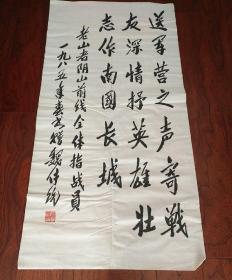 送军营之声寄战
友深情抒英雄壮
志作南國长城
老山者阴山前线全体指战員
一九八五年春书赠魏传统